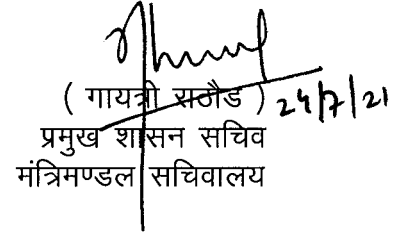 ( गायत्री राठौड ) 24/7/21
प्रमुख शासन सचिव
मंत्रिमण्डल सचिवालय